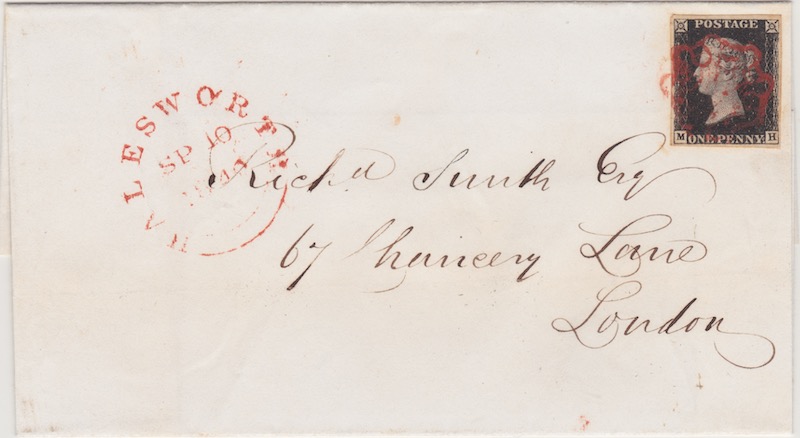 POSTAGE
M ONE PENNY H
HALESWORTH
SP 10
Richd Smith Esq
67 Chancery Lane
London